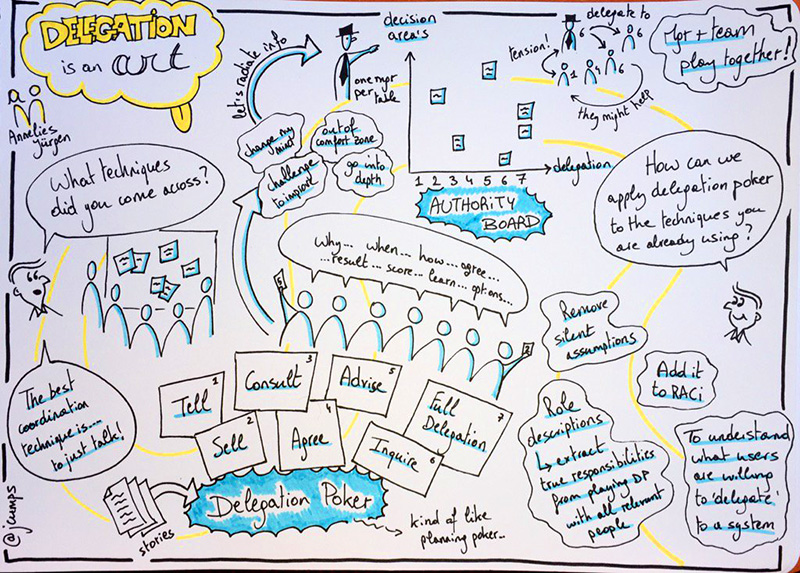 DELEGATION
is an art
Annelies
Jürgen
let's radiate info
one mgr
per
table
decision
area's
1 2 3 4 5 6 7
delegation
AUTHORITY
BOARD
delegate to
tension!
6
6
1
4
6
they might help
Mgr + team
play together!
change my
mind
out of
comfort zone
challenge
to improve
go into
depth
What techniques
did you come across?
How can we
apply delegation poker
to the techniques you
are already using?
Why... when... how... agree...
...result... score... learn... options...
5
2
The best
coordination
technique is...
to just talk!
Tell 1
Sell 2
Consult 3
Agree 4
Advise 5
Inquire 6
Full
Delegation 7
Delegation Poker
stories
kind of like
planning poker..
Remove
silent
assumptions
Add it
to RACi
Role
descriptions
↳ extract
true responsibilities
from playing DP
with all relevant
people
To understand
what users
are willing
to 'delegate'
to a system
@jcumps